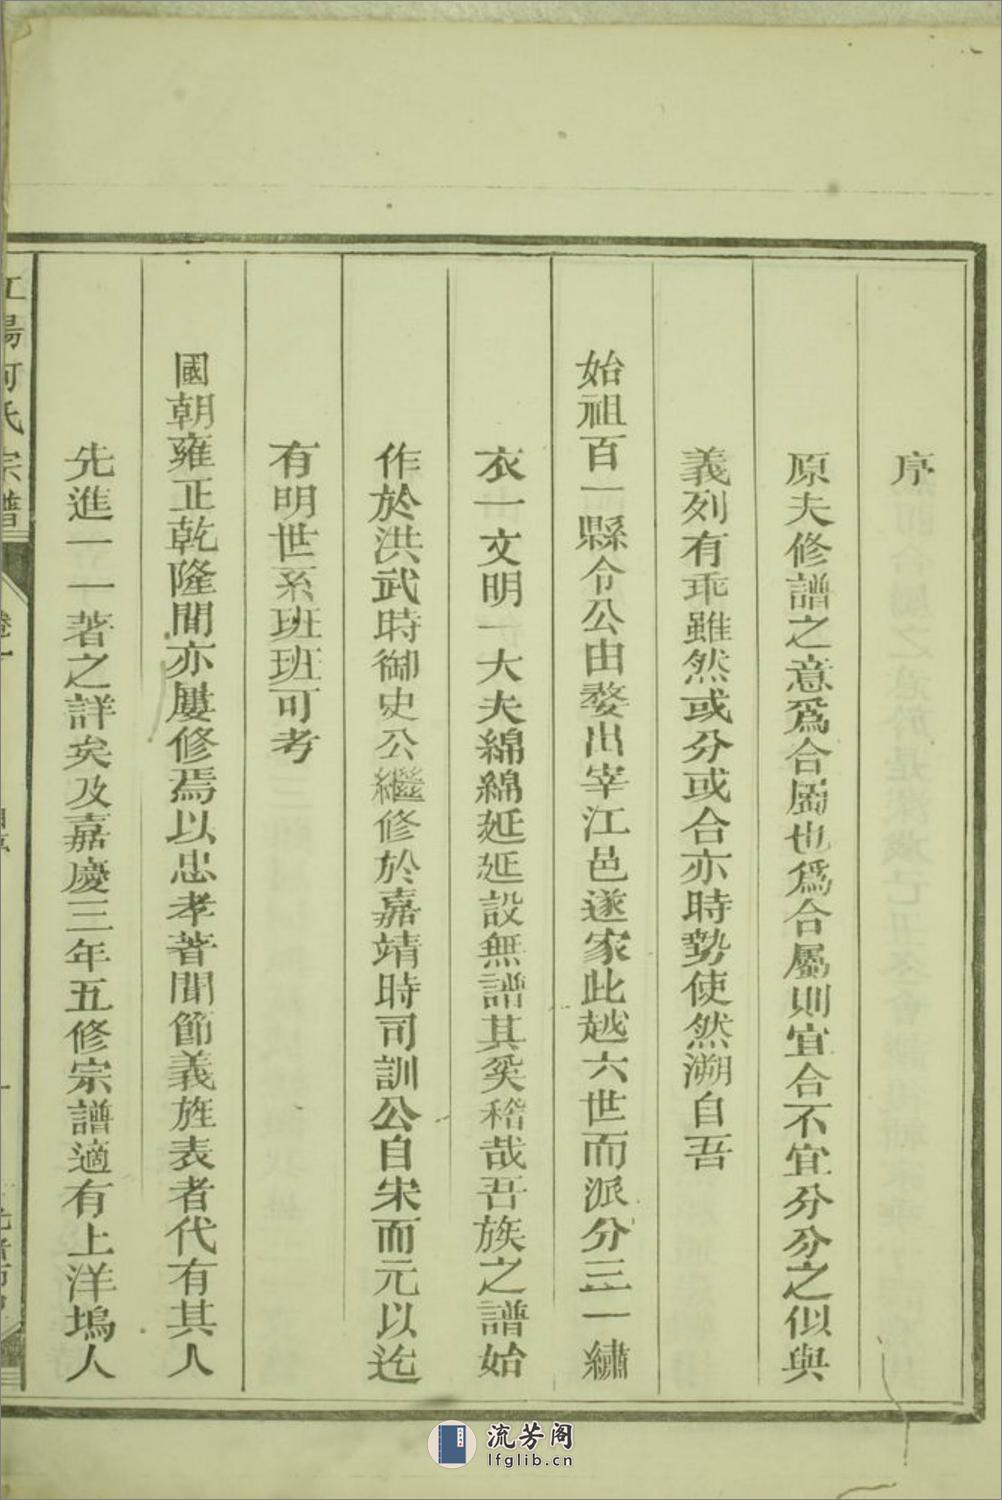 序
原夫修譜之意爲合屬也爲合屬則宜合不宜分分之似與
義列有乖雖然或分或合亦時勢使然溯自吾
始祖百一縣令公由婺出宰江邑遂家此越六世而派分三一繡
衣一文明一大夫綿綿延延設無譜其奚稽哉吾族之譜始
作於洪武時御史公繼修於嘉靖時司訓公自宋而元以迄
有明世系班班可考
國朝雍正乾隆間亦屢修焉以忠孝著聞節義旌表者代有其人
先進一一著之詳矣及嘉慶三年五修宗譜適有上洋塢人
江陽何氏宗譜
卷一
流芳阁
lfglib.cn